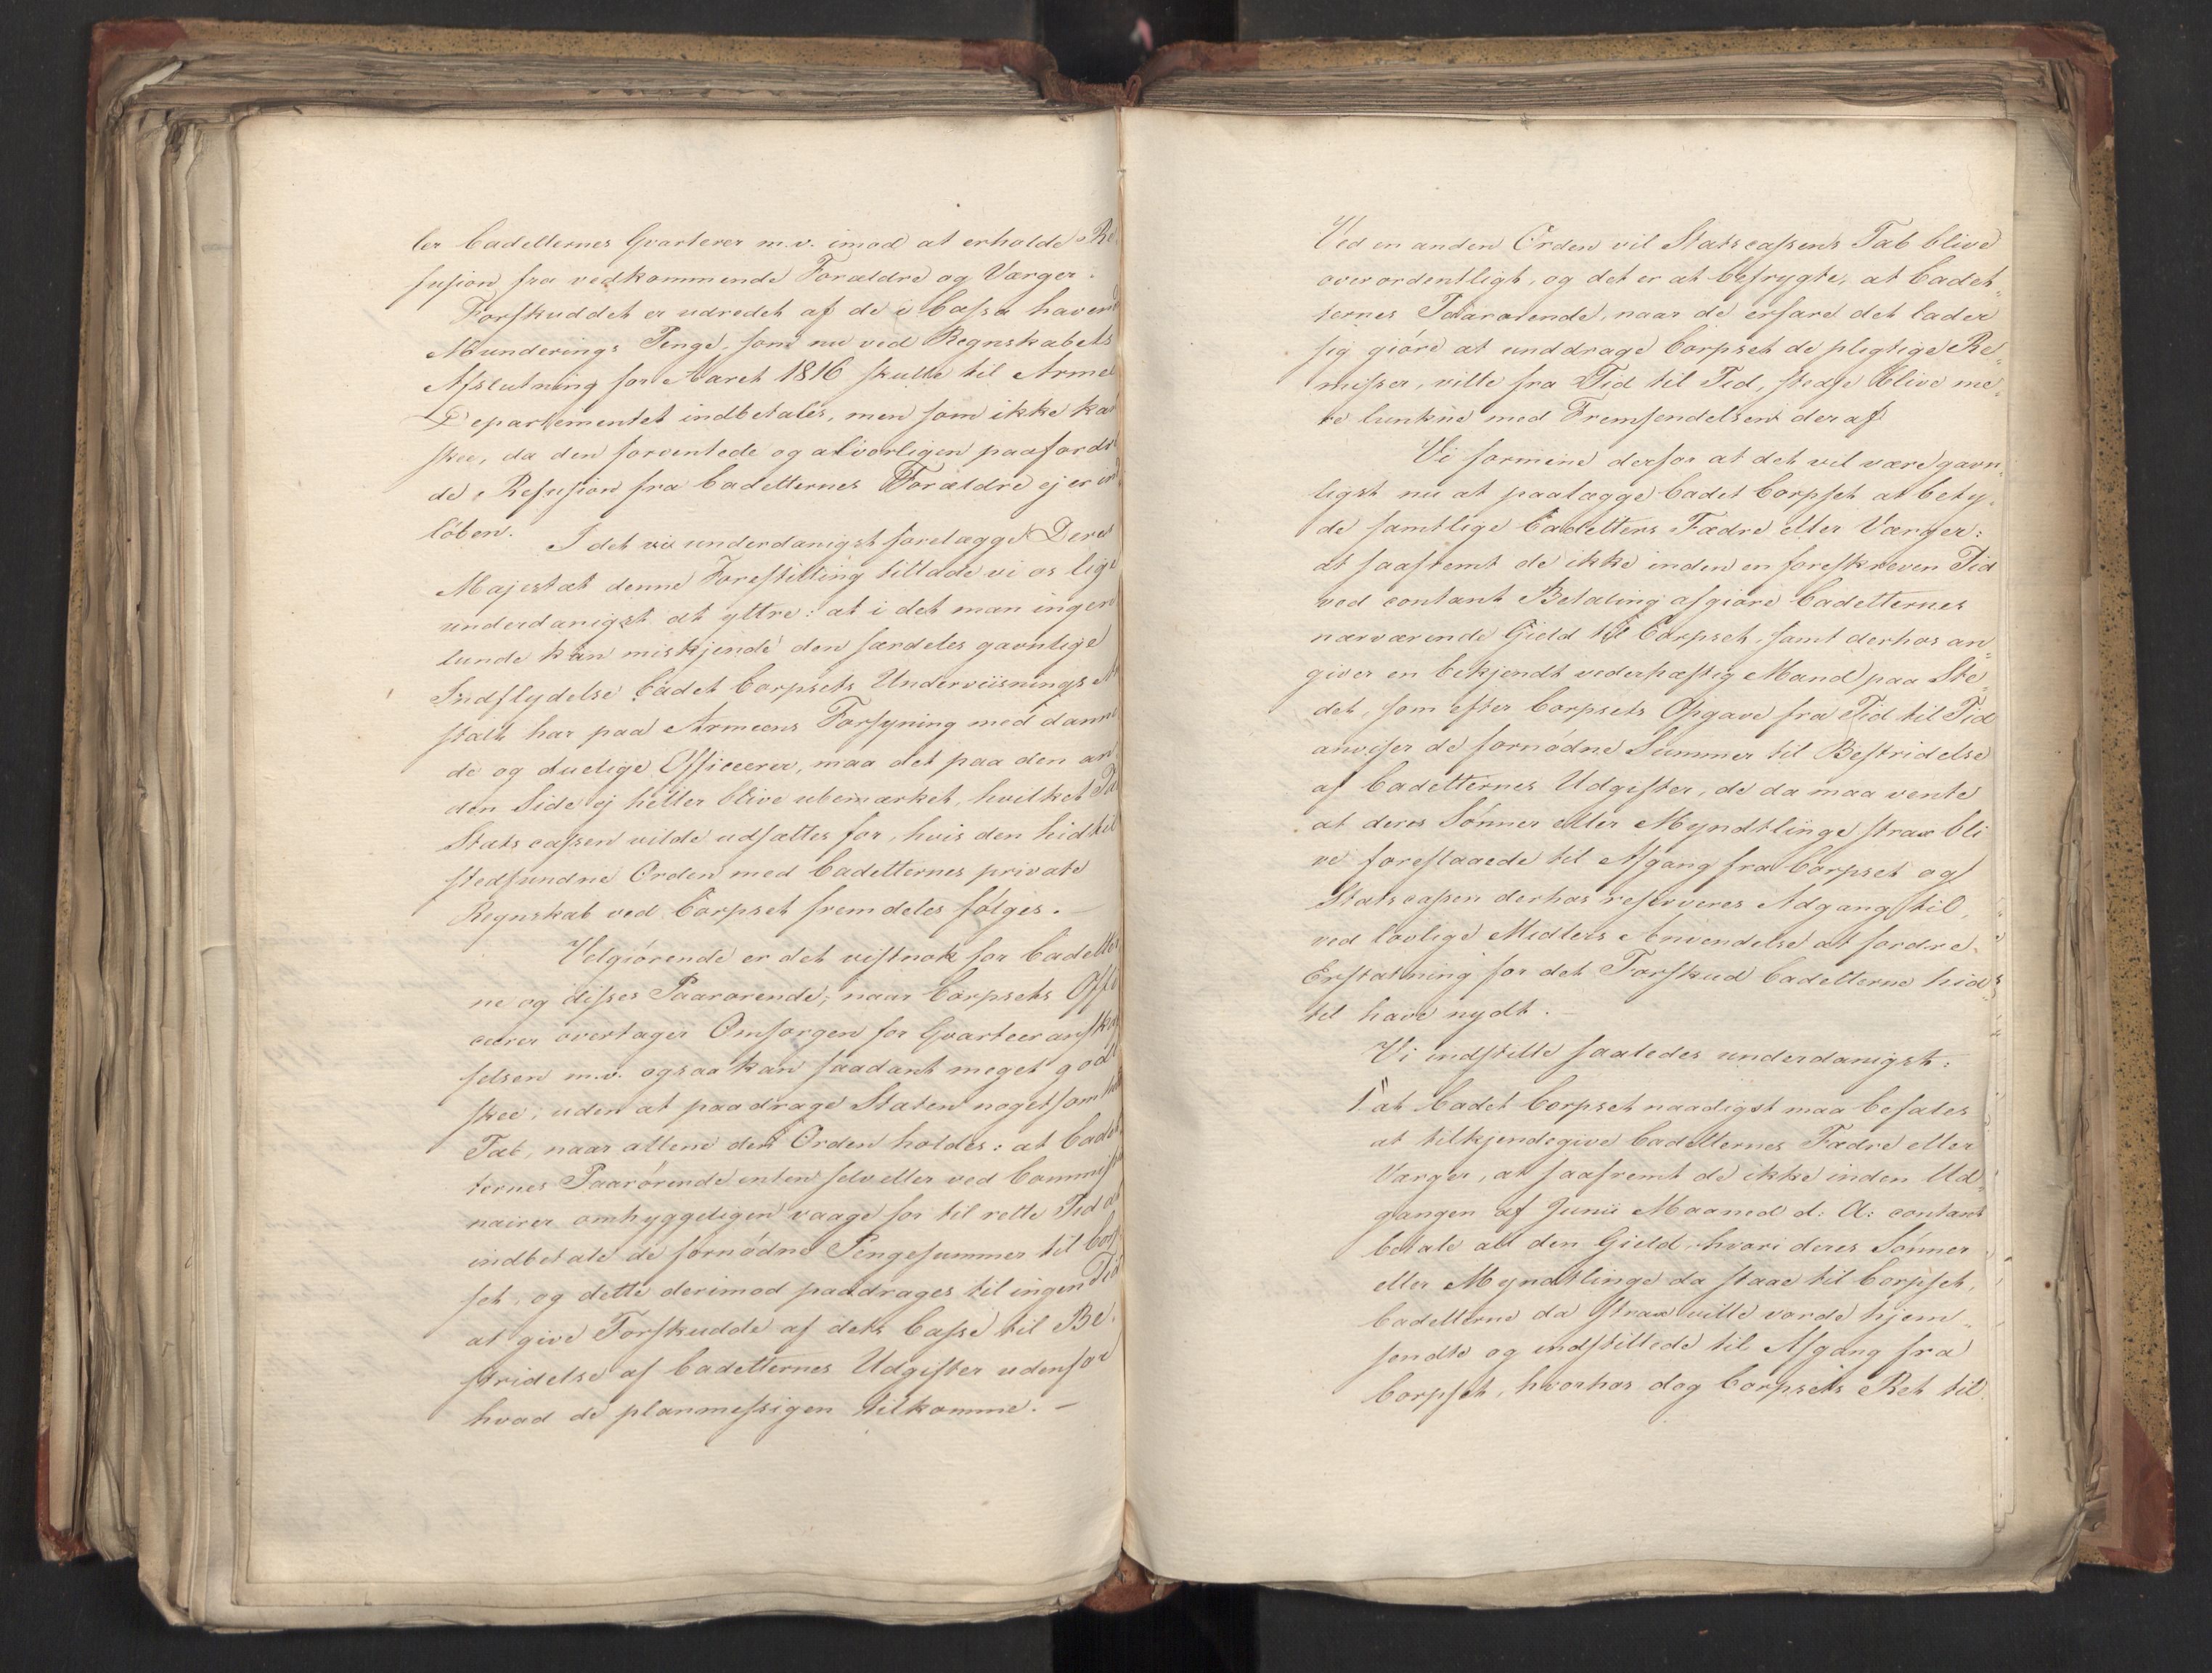 ler Cadetternes Qvarterer m.v. imod at erholde Re¬
fusion fra vedkommende Forældre og Værger.
Forskuddet er udredet af de i Cassa havend
Munderings Penge, som nu ved Regnskabets
Afslutning for Aaret 1816 skulle til Arme
Departementet indbetales, men som ikke kan
skee, da den forventede og alvorligen paafordr
de Refusion fra Cadetternes Forældre ej er ind
löben.
I det vi underdanigst forelægge Deres
Majestæt denne Forestilling tillade vi os lige
underdanigst at yttre: at i det man ingen
lunde kan miskjende den særdeles gavnlige
Indflydelse Cadet Corpsets Underviisnings An
stalt har paa Armeens Forsyning med danne
de og duelige Officerer, maa det paa den an
den Side ej heller blive ubemærket, hvilket Ta
Statscassen vilde udsættes for, hvis den hidtil
stedfundne Orden med Cadetternes private
Regnskab ved Corpset fremdeles følges. —
Velgiörende er det vistnok for Cadetter
ne og disses Paarørende, naar Corpsets Offi
cerer overtager Omsorgen for Qvarteer anskaf
felsen m.v. ogsaa kan saadant meget godt
skee, uden at paadrage Staten noget som helst
Tab, naar allene den Orden holdes: at Cadet
ternes Paarörende enten selv eller ved Commissi
nairer omhyggeligen vaage for til rette Tid at
indbetale de fornödne Pengesummer til Corp
set, og dette derimod paadrages til ingen Tid
at give Forskudde af dets Casse til Be¬
stridelse af Cadetternes Udgifter udenfor
hvad de planmessigen tilkomme. —
Ved en anden Orden vil Statscassens Tab blive
overordentligt, og det er at befrygte, at Cadet¬
ternes Paarørende, naar de erfare det lader
sig giöre at unddrage Corpset de pligtige Re¬
misser, ville fra Tid til Tid, stedse blive me¬
re lunkne med Fremsendelsen deraf
Vi formene derfor at det vil være gavn¬
ligst nu at paalægge Cadet Corpset at bety¬
de samtlige Cadetters Fædre eller Værger:
at saafremt de ikke inden en foreskreven Tid
ved contant Betaling afgiöre Cadetternes
nærværende Gield til Corpset, samt derhos an¬
giver en bekjendt vederhæftig Mand paa Ste¬
det, som efter Corpsets Opgave fra Tid til Tid
anviser de fornödne Summer til Bestridelse
af Cadetternes Udgifter, de da maa vente
at deres Sönner eller Myndtlinge strax bli
ve foreslaaede til Afgang fra Corpset og
Statscassen derhos reserveres Adgang til,
ved lovlige Midlers Anvendelse at fordre
Erstatning for det Forskud Cadetterne hid¬
til have nydt. —
Vi indstille saaledes underdanigst:
1" at Cadet Corpset naadigst maa befales
at tilkjendegive Cadetternes Fædre eller
Værger, at saafremt de ikke inden Ud¬
gangen af Junii Maaned d: A: contant
betale all den Gield, hvori deres Sönner
eller Myndtlinge da staae til Corpset,
Cadetterne da strax ville vorde hjem¬
sendte og indstillede til Afgang fra
Corpset, hvorhos dog Corpsets Ret til